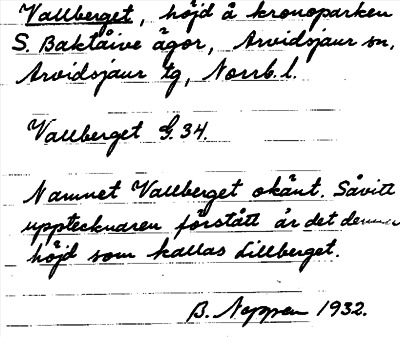 Vallberget, höjd å kronoparken
S. Baktåive ägor, Arvidsjaur sn,
Arvidsjaur tg, Norrb. l.
Vallberget G. 34.
Namnet Vallberget okänt. Såvitt
upptecknaren förstått är det denna
höjd som kallas Lillberget.
B. Neppen 1932.